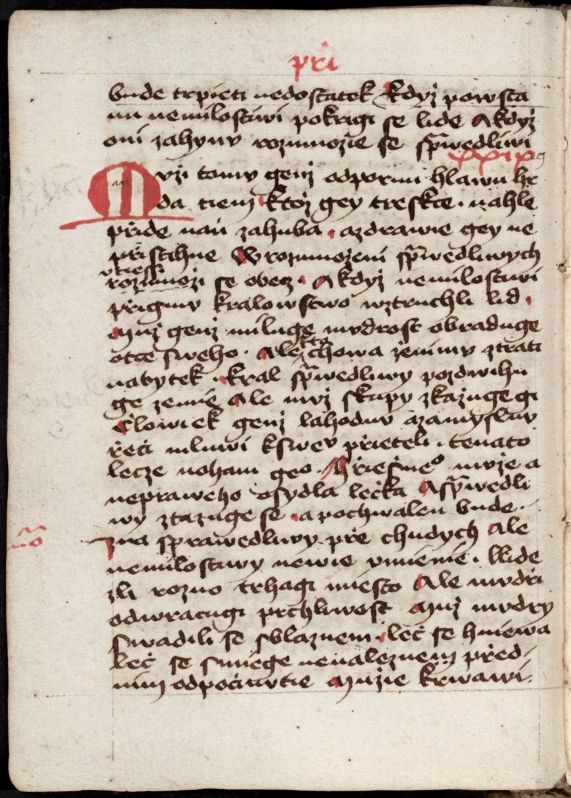 pri
bude trpieti nedostatek kdyz powsta
nu nemilostiwi pokrigi se lide A kdyz
oni zahynu rozmnozie se sprwedliwi
xxix
Muzi tomu genz odpornu hlawu hr
da tiem ktoz gey tresktce · nahle
pride nan zahuba · a zdrawie gey ne
pristihne W rozmnozeni sprwedliwych
utiessi
rozmnozi se obecz · A kdyz nemilostiwi
prigmu kralowstwo wztruchli lid
Muz genz miluge mudrost obraduge
otce sweho · Ale kto chowa zenimy ztrati
nabytek · kral sprwedliwy pozdwihu
ge zemie Ale muz skupy zkazuge gi
Clowiek genz lahodnu a zamyslnu
reci mluwi k swey prieteli · tenato
lecze noham geo · Hriessneo muze a
nepraweho osydla lecka A sprwedli
wy ztazuge se · a pochwalen bude ·
zna sprawedliwy pre chudych Ale
nemilostiwy newie umienie · Llide
zli rozno trhagi miesto Ale mudri
odwracugi prchliwost Muz mudry
swadili se s blaznem · lec se hniewa
lec se smiege nenaleznem pred
nim odpocinutie Muzie krwawi ·